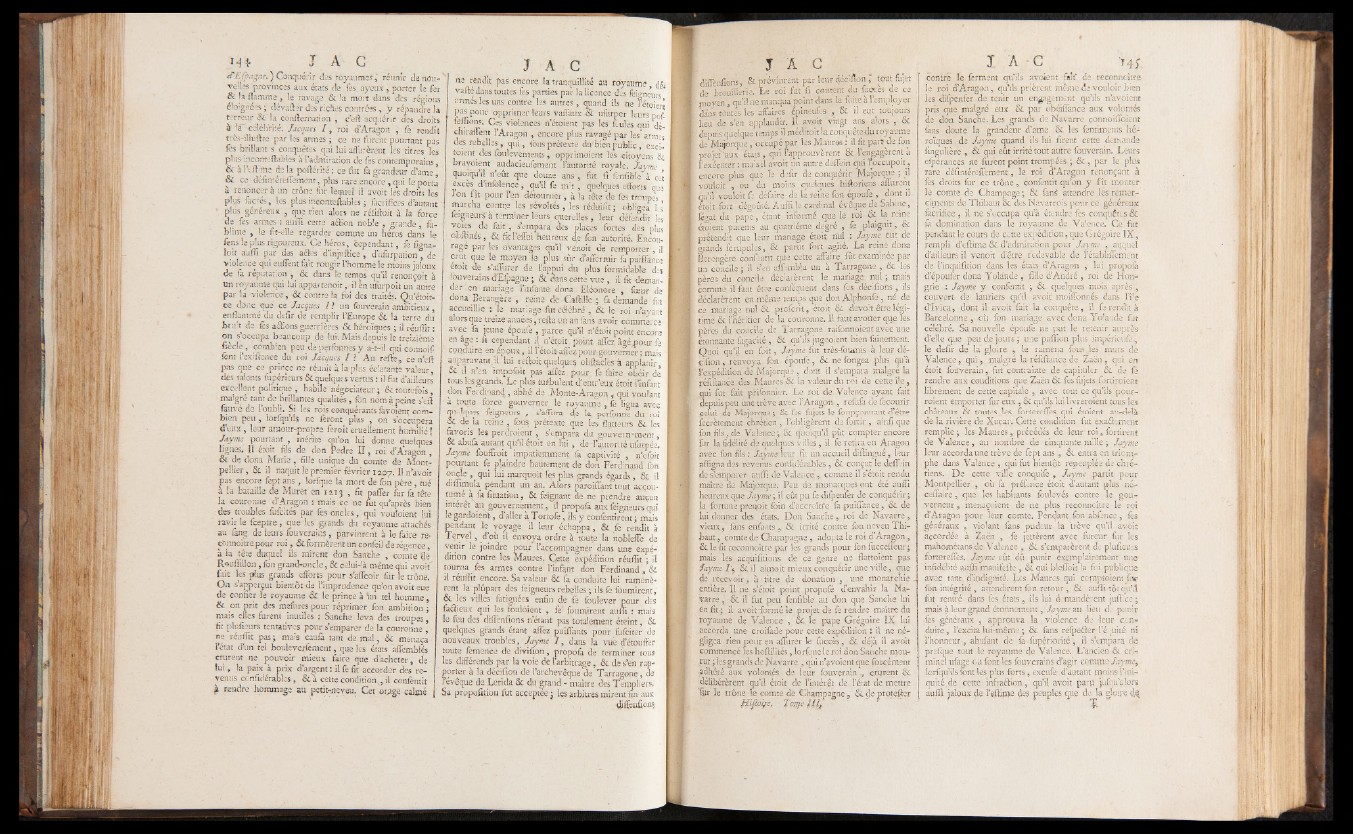 144 J A C
d'Espagne.) Conquérir des royaumes, réunir de nou-
velles provinces aux états de ses ayeux, porter le fer
& la flamme, le ravage & la mort dans des régions
éloignées ; dévaster des riches contrées, y répandre la
terreur & la consternation, c'est acquérir des droits
à la célébrité. Jacques I, roi d'Aragon, se rendit
très-illustre par les armes ; ce ne furent pourtant pas
ses brillantes conquêtes qui lui assurèrent les titres les
plus incontestables à l'admiration de ses contemporains,
& à l'estime de la postérité : ce fut sa grandeur d'ame,
& ce désintéressement, plus rare encore, qui le porta
à renoncer à un trône sur lequel il avoit les droits les
plus sacrés, les plus incontestables ; sacrifices d'autant
plus généreux, que rien alors ne résistoit à la force
de ses armes : aussi cette action noble, grande, su-
blime, le fit-elle regarder comme un héros dans le
sens le plus rigoureux. Ce héros, cependant, se signa-
loit aussi par des actes d'injustice, d'usurpation, de
violence qui eussent fait rougir l'homme le moins jaloux
de sa réputation, & dans le temps qu'il renonçoit à
un royaume qui lui appartenoit, il en usurpoit un autre
par la violence, & contre la foi des traités. Qu'étoit-
ce donc que ce Jacques I ? un souverain ambitieux,
enflammé du desir de remplir l'Europe & la terre du
bruit de ses actions guerrières & héroïques ; il réussit :
on s'occupa beaucoup de lui. Mais depuis le treizième
siècle, combien peu de personnes y a-t-il qui connois-
sent l'existence du roi Jacques I ? Au reste, ce n'est
pas que ce prince ne réunît à la plus éclatante valeur,
des talents supérieurs & quelques vertus : il fut d'ailleurs
excellent politique, habile négociateur ; & toutefois,
malgré tant de brillantes qualités, son nom à peine s'est
sauvé de l'oubli. Si les rois conquérants savoient com-
bien peu, lorsqu'ils ne seront plus, on s'occupera
d'eux, leur amour-propre seroit cruellement humilié !
Jayme pourtant, mérite qu'on lui donne quelques
lignes. Il étoit fils de don Pedre II, roi d'Aragon,
& de dona Marie, fille unique du comte de Mont-
pellier, & il naquit le premier février 1207. Il n'avoit
pas encore sept ans, lorsque la mort de son père, tué
à la bataille de Muret en 1213, fit passer sur sa tête
la couronne d'Aragon : mais ce ne fut qu'après bien
des troubles suscités par ses oncles, qui vouloient lui
ravir le sceptre, que les grands du royaume attachés
au sang de leurs souverains, parvinrent à le faire re-
connoître pour roi, & formèrent un conseil de régence,
à la tête duquel ils mirent don Sanche, comte de
Roussillon, son grand-oncle, & celui-là même qui avoit
fait les plus grands efforts pour s'asseoir sur le trône.
On s'apperçut bientôt de l'imprudence qu'on avoit eue
de confier le royaume & le prince à un tel homme,
& on prit des mesures pour réprimer son ambition ;
mais elles furent inutiles : Sanche leva des troupes,
fit plusieurs tentatives pour s'emparer de la couronne,
ne réussit pas ; mais causa tant de mal, & menaça
l'état d'un tel bouleversement, que les états assemblés
crurent ne pouvoir mieux faire que d'acheter, de
lui, la paix à prix d'argent : il se fit accorder des re-
venus considérables, & à cette condition, il consentit
à rendre hommage au petit-neveu. Cet orage calmé
J A C
ne rendit pas encore la tranquillité au royaume, dé-
vasté dans toutes ses parties par la licence des seigneurs,
armés les uns contre les autres, quand ils ne l'étoient
pas pour opprimer leurs vassaux & usurper leurs pos-
sessions. Ces violences n'étoient pas les seules qui dé-
chirassent l'Aragon, encore plus ravagé par les armes
des rebelles, qui, sous prétexte du bien public, exci-
toient des soulevements, opprimoient les citoyens &
bravoient audacieusement l'autorité royale. Jayme,
quoiqu'il n'eût que douze ans, fut si sensible à cet
excès d'insolence, qu'il se mit, quelques efforts que
l'on fît pour l'en détourner, à la tête de ses troupes,
marcha contre les révoltés, les réduisit ; obligea les
seigneurs à terminer leurs querelles, leur défendit les
voies de fait, s'empara des places fortes des plus
obstinés, & fit l'essai heureux de son autorité. Encou-
ragé par les avantages qu'il venoit de remporter, il
crut que le moyen le plus sûr d'affermir sa puissance
étoit de s'assurer de l'appui du plus formidable des
souverains d'Espagne ; & dans cette vue, il fit deman-
der en mariage l'infante dona Eléonore, sœur de
dona Berangère, reine de Castille ; sa demande fut
accueillie : le mariage fut célébré, & le roi n'ayant
alors que treize années, resta un an sans avoir commerce
avec sa jeune épouse, parce qu'il n'étoit point encore
en âge : si cependant il n'étoit point assez âgé pour se
conduire en époux, il l'étoit assez pour gouverner ; mais
auparavant il lui restoit quelques obstacles à applanir,
& il n'en imposoit pas assez pour se faire obéir de
tous les grands. Le plus turbulent d'entr'eux étoit l'infant
don Ferdinand, abbé de Monte-Aragon, qui voulant
à toute force gouverner le royaume, se ligua avec
quelques seigneurs, s'assura de la personne du roi
& de la reine, sous prétexte que les flatteurs & les
favoris les perdroient, s'empara du gouvernement,
& abusa autant qu'il étoit en lui, de l'autorité usurpée.
Jayme souffroit impatiemment sa captivité, n'osoit
pourtant se plaindre hautement de don Ferdinand son
oncle, qui lui marquoit les plus grands égards, & il
dissimula pendant un an. Alors paroissant tout accou-
tumé à sa situation, & feignant de ne prendre aucun
intérêt au gouvernement, il proposa aux seigneurs qui
le gardoient, d'aller à Tortose, ils y consentirent ; mais
pendant le voyage il leur échappa, & se rendit à
Tervel, d'où il envoya ordre à toute la noblesse de
venir le joindre pour l'accompagner dans une expé-
dition contre les Maures. Cette expédition réussit ; il
tourna ses armes contre l'infant don Ferdinand, &
il réussit encore. Sa valeur & sa conduite lui ramenè-
rent la plûpart des seigneurs rebelles ; ils se soumirent,
& les villes fatiguées enfin de se soulever pour des
factieux qui les fouloient, se soumirent aussi : mais
le feu des dissensions n'étant pas totalement éteint, &
quelques grands étant assez puissants pour susciter de
nouveaux troubles, Jayme I, dans la vue d'étouffer
toute semence de division, proposa de terminer tous
les différends par la voie de l'arbitrage, & de s'en rap-
porter à la décision de l'archevêque de Tarragone, de
l'évêque de Lerida & du grand-maître des Templiers.
Sa proposition fut acceptée ; les arbitres mirent fin aux
dissensions
J A C
dissensions, & prévinrent par leur décision, tout sujet
de brouillerie. Le roi fut si content du succès de ce
moyen, qu'il ne manqua point dans la suite à l'employer
dans toutes les affaires épineuses, & il eut toujours
lieu de s'en applaudir. Il avoit vingt ans alors, &
depuis quelque temps il méditoit la conquête du royaume
de Majorque, occupé par les Maures : il fit part de son
projet aux états, qui l'approuvèrent & l'engagèrent à
l'exécuter : mais il avoit un autre dessein qui l'occupoit,
encore plus que le desir de conquérir Majorque ; il
vouloit, ou du moins quelques historiens assurent
qu'il vouloit se défaire de la reine son épouse, dont il
étoit fort dégoûté. Aussi le cardinal évêque de Sabine,
légat du pape, étant informé que le roi & la reine
étoient parents au quatrième degré, se plaignit, &
prétendit que leur mariage étoit nul : Jayme eut de
grands scrupules, & parut fort agité. La reine dona
Berengère consentit que cette affaire fût examinée par
un concile ; il s'en assembla un à Tarragone, & les
pères du concile déclarèrent le mariage nul ; mais
comme il faut être conséquent dans ses décisions, ils
déclarèrent en même temps que don Alphonse, né de
ce mariage nul & proscrit, étoit & devoit être légi-
time & l'héritier de la couronne. Il faut avouer que les
pères du concile de Tarragone raisonnoient avec une
étonnante sagacité, & qu'ils jugeoient bien sainement.
Quoi qu'il en soit, Jayme fut très-soumis à leur dé-
cision, renvoya son épouse, & ne songea plus qu'à
l'expédition de Majorque, dont il s'empara malgré la
résistance des Maures & la valeur du roi de cette île,
qui fut fait prisonnier. Le roi de Valence ayant fait
depuis peu une trève avec l'Aragon, refusa de secourir
celui de Majorque, & ses sujets le soupçonnant d'être
secrétement chrétien, l'obligèrent de sortir, ainsi que
son fils, de Valence ; & quoiqu'il pût compter encore
sur la fidélité de quelques villes, il se retira en Aragon
avec son fils : Jayme leur fit un accueil distingué, leur
assigna des revenus considérables, & conçut le dessein
de s'emparer aussi de Valence, comme il s'étoit rendu
maître de Majorque. Peu de monarques ont été aussi
heureux que Jayme ; il eût pu se dispenser de conquérir ;
la fortune prenoit soin d'accroître sa puissance, & de
lui donner des états. Don Sanche, roi de Navarre,
vieux, sans enfants, & irrité contre son neveu Thi-
baut, comte de Champagne, adopta le roi d'Aragon,
& le fit reconnoître par les grands pour son successeur ;
mais les acquisitions de ce genre ne flattoient pas
Jayme I, & il aimoit mieux conquérir une ville, que
de recevoir, à titre de donation, une monarchie
entière. Il ne s'étoit point proposé d'envahir la Na-
varre, & il fut peu sensible au don que Sanche lui
en fit ; il avoit formé le projet de se rendre maître du
royaume de Valence, & le pape Grégoire IX lui
accorda une croisade pour cette expédition : il ne né-
gligea rien pour en assurer le succès, & déjà il avoit
commencé les hostilités, lorsque le roi don Sanche mou-
rut ; les grands de Navarre, qui n'avoient que forcément
adhéré aux volontés de leur souverain, crurent &
délibérèrent qu'il étoit de l'intérêt de l'état de mettre
sur le trône le comte de Champagne, & de protester
Histoire. Tome III.
J A C 145
contre le serment qu'ils avoient fait de reconnoître
le roi d'Aragon, qu'ils prièrent même de vouloir bien
les dispenser de tenir un engagement qu'ils n'avoient
pris que malgré eux & par obéissance aux volontés
de don Sanche. Les grands de Navarre connoissoient
sans doute la grandeur d'ame & les sentiments hé-
roïques de Jayme quand ils lui firent cette demande
singulière, & qui eût irrité tout autre souverain. Leurs
espérances ne furent point trompées ; &, par le plus
rare désintéressement, le roi d'Aragon renonçant à
ses droits sur ce trône, consentit qu'on y fît monter
le comte de Champagne ; & sans attendre les remer-
ciments de Thibaut & des Navarrois pour ce généreux
sacrifice, il ne s'occupa qu'à étendre ses conquêtes &
sa domination dans le royaume de Valence. Ce fut
pendant le cours de cette expédition, que Grégoire IX,
rempli d'estime & d'admiration pour Jayme, auquel
d'ailleurs il venoit d'être redevable de l'établissement
de l'inquisition dans les états d'Aragon, lui proposa
d'épouser dona Yolande, fille d'André, roi de Hon-
grie : Jayme y consentit ; & quelques mois après,
couvert de lauriers qu'il avoit moissonnés dans l'île
d'Ivica, dont il avoit fait la conquête, il se rendit à
Barcelonne, où son mariage avec dona Yolande fut
célébré. Sa nouvelle épouse ne put le retenir auprès
d'elle que peu de jours ; une passion plus impérieuse,
le desir de la gloire, le ramena sous les murs de
Valence, qui, malgré la résistance de Zaën, qui en
étoit souverain, fut contrainte de capituler & de se
rendre aux conditions que Zaën & ses sujets sortiroient
librement de cette capitale, avec tout ce qu'ils pour-
roient emporter sur eux, & qu'ils lui livreroient tous les
châteaux & toutes les forteresses qui étoient au-delà
de la rivière de Xucar. Cette condition fut exactement
remplie ; les Maures, précédés de leur roi, sortirent
de Valence, au nombre de cinquante mille ; Jayme
leur accorda une trève de sept ans, & entra en triom-
phe dans Valence, qui fut bientôt repeuplée de chré-
tiens. De cette ville conquise, Jayme partit pour
Montpellier, où sa présence étoit d'autant plus né-
cessaire, que les habitants soulevés contre le gou-
verneur, menaçoient de ne plus reconnoître le roi
d'Aragon pour leur comte. Pendant son absence, ses
généraux, violant sans pudeur la trève qu'il avoit
accordée à Zaën, se jettèrent avec fureur sur les
mahométans de Valence, & s'emparèrent de plusieurs
forteresses. Jayme eût dû punir exemplairement une
infidélité aussi manifeste, & qui blessoit la foi publique
avec tant d'indignité. Les Maures qui comptoient sur
son intégrité, attendirent son retour, & aussi-tôt qu'il
fut rentré dans ses états, ils lui demandèrent justice ;
mais à leur grand étonnement, Jayme au lieu de punir
ses généraux, approuva la violence de leur con-
duite, l'excita lui-même ; & sans respecter l'équité ni
l'honneur, abusant de sa supériorité, il s'empara de
presque tout le royaume de Valence. L'ancien & cri-
minel usage où sont les souverains d'agir comme Jayme,
lorsqu'ils sont les plus forts, excuse d'autant moins l'ini-
quité de cette infraction, qu'il avoit paru jusqu'alors
aussi jaloux de l'estime des peuples que de la gloire de
T